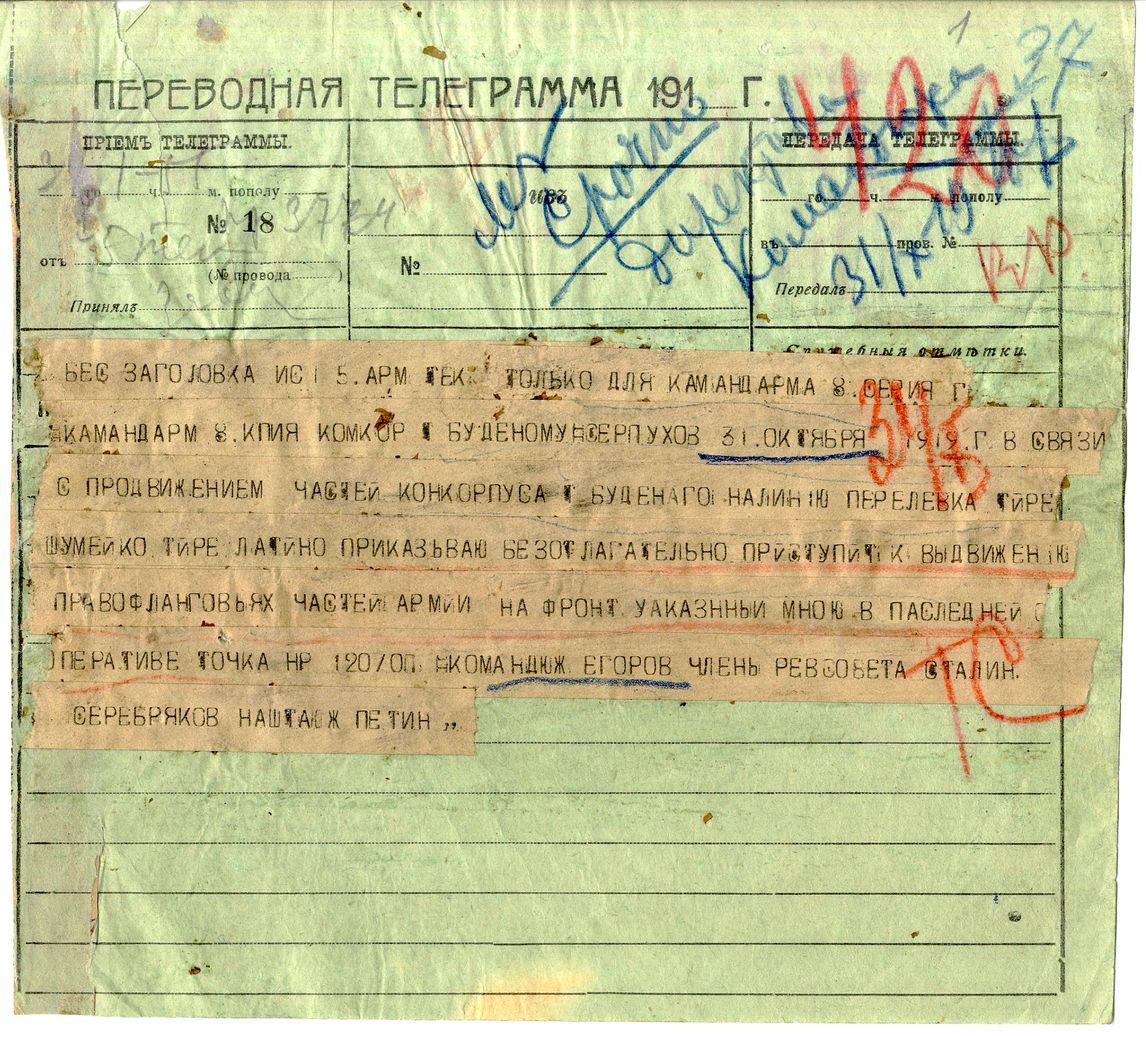 1
ПЕРЕВОДНАЯ ТЕЛЕГРАММА 191 Г.
37
420
ПРІЕМЪ ТЕЛЕГРАММЫ.
Срочно
ПЕРЕДАЧА ТЕЛЕГРАММЫ.
го ч. м. пополу
го ч. м. пополу
№ 18 3734
изъ
отъ
(№ провода )
№
въ пров. №
31/X 19
Принялъ
Передалъ
Служебныя отмѣтки.
БЕС ЗАГОЛОВКА ИС 5.АРМ ТЕК ТОЛЬКО ДЛЯ КАМАНДАРМА 8.СЕРИЯ Г
КАМАНДАРМ 8.КПИЯ КОМКОР БУДЕНОМУ СЕРПУХОВ 31.ОКТЯБРЯ 1919.Г В СВЯЗИ
31/X
С ПРОДВИЖЕНИЕМ ЧАСТЕЙ КОНКОРПУСА Т БУДЕНАГО НАЛИНIЮ ПЕРЕЛЕВКА ТИРЕ
ШУМЕЙКО ТИРЕ ЛАТИНО ПРИКАЗЬВАЮ БЕЗОТЛАГАТЕЛЬНО ПРИСТУПИТ К ВЫДВИЖЕНIЮ
ПРАВОФЛАНГОВЬЯХ ЧАСТЕЙ АРМИИ НА ФРОНТ УАКАЗННЫИ МНОЮ В ПАСЛЕДНЕЙ О
ОПЕРАТИВЕ ТОЧКА НР 120/ОП. КОМАНДЮЖ ЕГОРОВ ЧЛЕНЬ РЕВСОВЕТА СТАЛИН.
СЕРЕБРЯКОВ НАШТАЮЖ ПЕТИН „